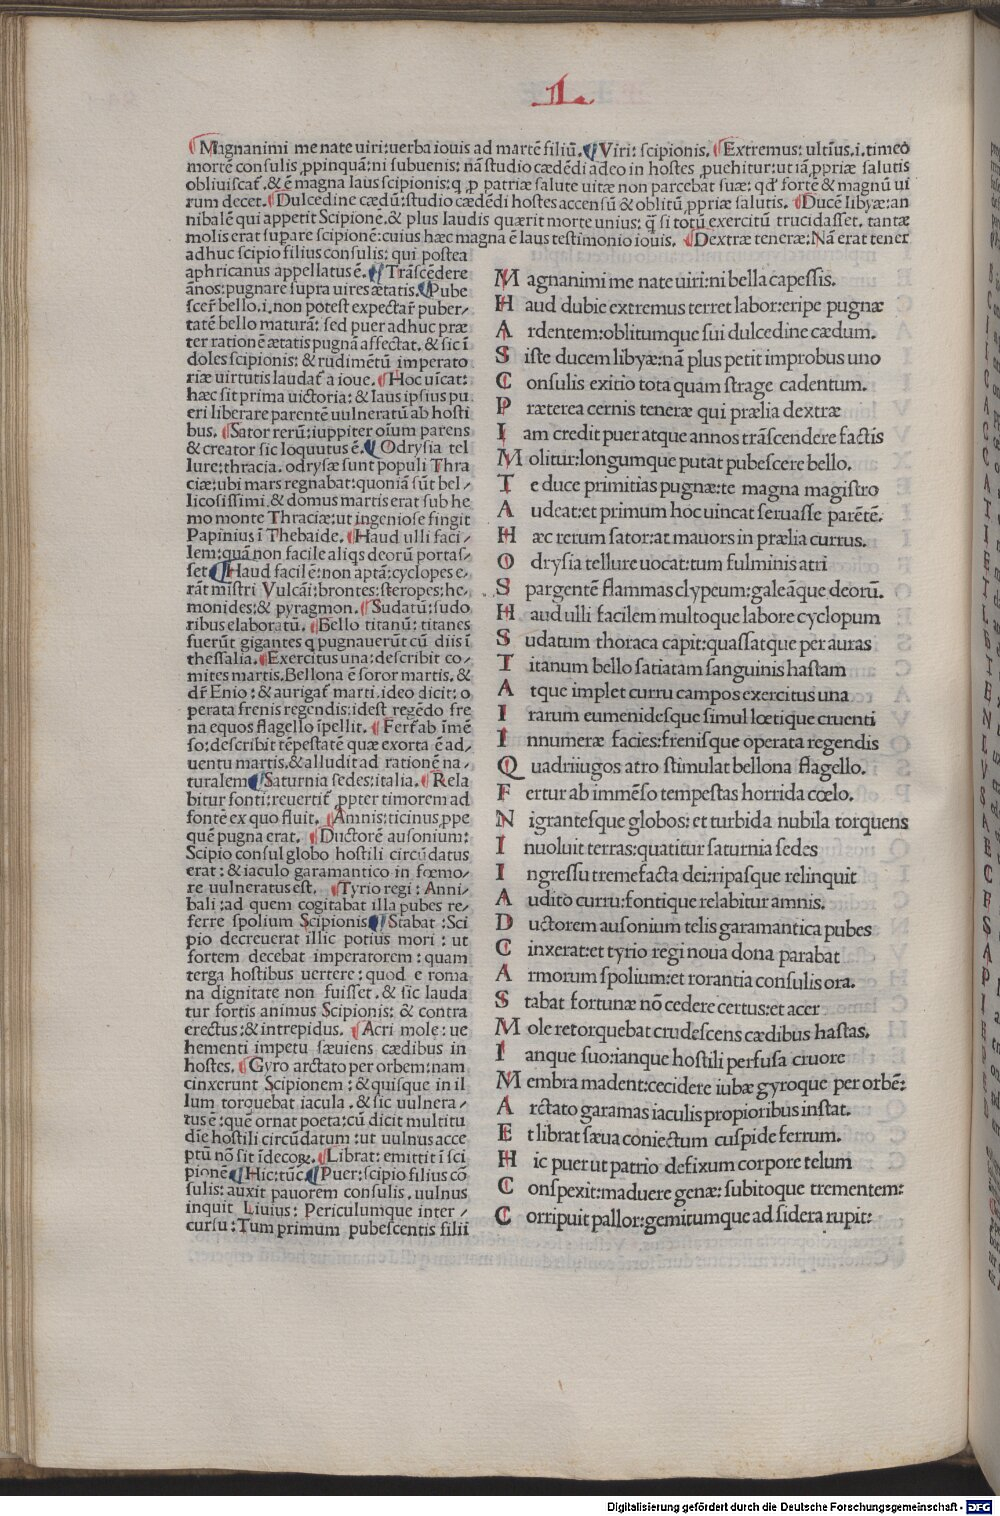 L
Magnanimi me nate uiri:uerba iouis ad martē filiū. Viri: scipionis. Extremus: ultīus.i.timeo
mortē consulis ꝓpinquā:ni subuenis: nā studio cædēdi adeo in hostes ꝓuehitur:ut iā ꝓpriæ salutis
obliuiscat̄.& ē magna laus scipionis: q ꝓ patriæ salute uitæ non parcebat suæ: qđ fortē & magnū ui
rum decet. Dulcedine cædū:studio cædēdi hostes accensū & oblitū ꝓpriæ salutis. Ducē libyæ:an
nibalē qui appetit Scipionē.& plus laudis quærit morte unius: q̄ si totū exercitū trucidasset. tantæ
molis erat supare scipionē:cuius hæc magna ē laus testimonio iouis. Dextræ teneræ: Nā erat tener
adhuc scipio filius consulis: qui postea
aphricanus appellatus ē. Trāscēdere
ānos: pugnare supra uires ætatis. Pube
scer̄ bello.i.non potest expectar̄ puber/
tatē bello maturā: sed puer adhuc præ
ter rationē ætatis pugnā affectat. & sic ī
doles scipionis: & rudimētū imperato
riæ uirtutis laudat̄ a ioue. Hoc uīcat:
hæc sit prima uictoria: & laus ipsius pu
eri liberare parentē uulneratū ab hosti
bus. Sator rerū: iuppiter oīum parens
& creator sic loquutus ē. Odrysia tel
lure: thracia. odrysæ sunt populi Thra
ciæ: ubi mars regnabat: quoniā sūt bel/
licosissimi. & domus martis erat sub he
mo monte Thraciæ: ut ingeniose fingit
Papinius ī Thebaide. Haud ulli faci/
lem: quā non facile aliqs deorū portas/
set. Haud facil ē: non aptā: cyclopes e/
rāt mīstri Vulcāi: brontes: steropes: he/
monides: & pyragmon. Sudatū: sudo
ribus elaboratū. Bello titanū: titanes
fuerūt gigantes q pugnauerūt cū diis ī
thessalia. Exercitus una: describit co/
mites martis. Bellona ē soror martis. &
dr̄ Enio: & aurigat̄ marti. ideo dicit: o
perata frenis regendis: idest regēdo fre
na equos flagello īpellit. Fert̄ ab īmē
so: describit tēpestatē quæ exorta ē ad/
uentu martis. & alludit ad rationē na/
turalem. Saturnia sedes: italia. Rela
bitur fonti: reuertit̄ ꝓpter timorem ad
fontē ex quo fluit. Amnis: ticinus ꝓpe
quē pugna erat. Ductorē ausonium:
Scipio consul globo hostili circūdatus
erat: & iaculo garamantico in fœmo/
re uulneratus est. Tyrio regi: Anni/
bali: ad quem cogitabat illa pubes re/
ferre spolium Scipionis. Stabat: Sci
pio decreuerat illic potius mori: ut
fortem decebat imperatorem: quam
terga hostibus uertere: quod e roma
na dignitate non fuisset. & sic lauda
tur fortis animus Scipionis: & contra
erectus: & intrepidus. Acri mole: ue
hementi impetu sæuiens cædibus in
hostes. Gyro arctato per orbem: nam
cinxerunt Scipionem: & quisque in il
lum torquebat iacula. & sic uulnera/
tus ē: quē ornat poeta: cū dicit multitu
dīe hostili circūdatum: ut uulnus acce
ptū nō sit īdecoꝝ. Librat: emittit ī sci
pionē. Hic: tūc. Puer: scipio filius cō
sulis: auxit pauorem consulis. uulnus
inquit Liuius: Periculumque inter/
cursu: Tum primum pubescentis filii
M agnanimi me nate uiri:ni bella capessis.
H aud dubie extremus terret labor:eripe pugnæ
A rdentem:oblitumque sui dulcedine cædum.
S iste ducem libyæ:nā plus petit improbus uno
C onsulis exitio tota quām strage cadentum.
P ræterea cernis teneræ qui prælia dextræ
I am credit puer atque annos trāscendere factis
M olitur:longumque putat pubescere bello.
T e duce primitias pugnæ:te magna magistro
A udeat:et primum hoc uincat seruasse parētē.
H æc rerum sator:at mauors in prælia currus.
O drysia tellure uocat:tum fulminis atri
S pargentē flammas clypeum:galeāque deorū.
H aud ulli facilem multoque labore cyclopum
S udatum thoraca capit:quassatque per auras
T itanum bello satiatam sanguinis hastam
A tque implet curru campos exercitus una
I rarum eumenidesque simul lœtique cruenti
I nnumeræ facies:frenisque operata regendis
Q uadriiugos atro stimulat bellona flagello.
F ertur ab immēso tempestas horrida cœlo.
N igrantesque globos: et turbida nubila torquens
I nuoluit terras:quatitur saturnia sedes
I ngressu tremefacta dei:ripasque relinquit
A udito curru:fontique relabitur amnis.
D uctorem ausonium telis garamantica pubes
C inxerat:et tyrio regi noua dona parabat
A rmorum spolium:et rorantia consulis ora.
S tabat fortunæ nō cedere certus:et acer
M ole retorquebat crudescens cædibus hastas.
I anque suo:ianque hostili perfusa cruore
M embra madent:cecidere iubæ gyroque per orbē:
A rctato garamas iaculis propioribus instat.
E t librat sæua coniectum cuspide ferrum.
H ic puer ut patrio defixum corpore telum
C onspexit:maduere genæ: subitoque trementem:
C orripuit pallor:gemitumque ad sidera rupit:
Digitalisierung gefördert durch die Deutsche Forschungsgemeinschaft - DFG